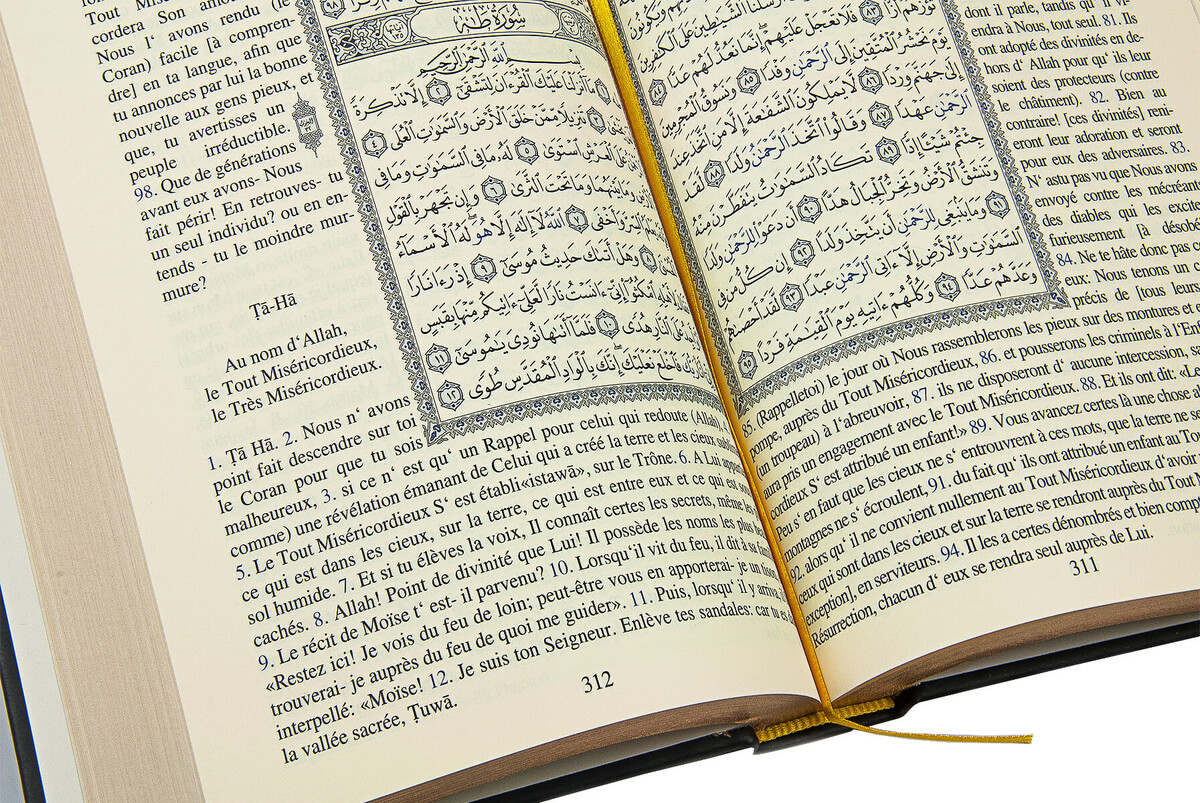 عَلَى ٱلْكَٰفِرِينَ
تَؤُزُّهُمْ أَزًّا ٨٣ فَلَا تَعْجَلْ عَلَيْهِمْ إِنَّمَا نَعُدُّ لَهُمْ عَدًّا ٨٤
يَوْمَ نَحْشُرُ ٱلْمُتَّقِينَ إِلَى ٱلرَّحْمَٰنِ وَفْدًا ٨٥ وَنَسُوقُ ٱلْمُجْرِمِينَ
إِلَىٰ جَهَنَّمَ وِرْدًا ٨٦ لَّا يَمْلِكُونَ ٱلشَّفَٰعَةَ إِلَّا مَنِ ٱتَّخَذَ عِندَ
ٱلرَّحْمَٰنِ عَهْدًا ٨٧ وَقَالُوا۟ ٱتَّخَذَ ٱلرَّحْمَٰنُ وَلَدًا ٨٨ لَّقَدْ
جِئْتُمْ شَيْـًٔا إِدًّا ٨٩ تَكَادُ ٱلسَّمَٰوَٰتُ يَتَفَطَّرْنَ مِنْهُ
وَتَنشَقُّ ٱلْأَرْضُ وَتَخِرُّ ٱلْجِبَالُ هَدًّا ٩٠ أَن دَعَوْا۟ لِلرَّحْمَٰنِ وَلَدًا ٩١
وَمَا يَنۢبَغِى لِلرَّحْمَٰنِ أَن يَتَّخِذَ وَلَدًا ٩٢ إِن كُلُّ مَن فِى
ٱلسَّمَٰوَٰتِ وَٱلْأَرْضِ إِلَّآ ءَاتِى ٱلرَّحْمَٰنِ عَبْدًا ٩٣ لَّقَدْ أَحْصَىٰهُمْ
وَعَدَّهُمْ عَدًّا ٩٤ وَكُلُّهُمْ ءَاتِيهِ يَوْمَ ٱلْقِيَٰمَةِ فَرْدًا ٩٥
dont il parle, tandis qu' il vi-
endra à Nous, tout seul. 81. Ils
ont adopté des divinités en de-
hors d' Allah pour qu' ils leur
soient des protecteurs (contre
le châtiment). 82. Bien au
contraire! [ces divinités] reni-
eront leur adoration et seront
pour eux des adversaires. 83.
N' astu pas vu que Nous avons
envoyé contre les mécréants
des diables qui les excitent
furieusement [à désobéir]
84. Ne te hâte donc pas contre
eux: Nous tenons un compte
précis de [tous leurs
85. (Rappelletoi) le jour où Nous rassemblerons les pieux sur des montures et
pompe, auprès du Tout Miséricordieux, 86. et pousserons les criminels à l'
(un troupeau) à l'abreuvoir, 87. ils ne disposeront d' aucune intercession,
aura pris un engagement avec le Tout Miséricordieux. 88. Et ils ont dit: «Le
cordieux S' est attribué un enfant!» 89. Vous avancez certes là une chose
Peu s' en faut que les cieux ne s' entrouvrent à ces mots, que la terre ne se
montagnes ne s' écroulent, 91. du fait qu' ils ont attribué un enfant au Tout
92. alors qu' il ne convient nullement au Tout Miséricordieux d' avoir
ceux qui sont dans les cieux et sur la terre se rendront auprès du Tout
exception], en serviteurs. 94. Il les a certes dénombrés et bien
Résurrection, chacun d' eux se rendra seul auprès de Lui.
311
سُورَةُ طه
بِسْمِ ٱللَّهِ ٱلرَّحْمَٰنِ ٱلرَّحِيمِ
مَآ أَنزَلْنَا عَلَيْكَ ٱلْقُرْءَانَ لِتَشْقَىٰٓ ٢ إِلَّا تَذْكِرَةً
تَنزِيلًا مِّمَّنْ خَلَقَ ٱلْأَرْضَ وَٱلسَّمَٰوَٰتِ ٱلْعُلَى ٤
عَلَى ٱلْعَرْشِ ٱسْتَوَىٰ ٥ لَهُۥ مَا فِى ٱلسَّمَٰوَٰتِ وَمَا فِى
بَيْنَهُمَا وَمَا تَحْتَ ٱلثَّرَىٰ ٦ وَإِن تَجْهَرْ بِٱلْقَوْلِ
ٱلسِّرَّ وَأَخْفَى ٧ ٱللَّهُ لَآ إِلَٰهَ إِلَّا هُوَ لَهُ ٱلْأَسْمَآءُ
٨ وَهَلْ أَتَىٰكَ حَدِيثُ مُوسَىٰٓ ٩ إِذْ رَءَا نَارًا
ٱمْكُثُوٓا۟ إِنِّىٓ ءَانَسْتُ نَارًا لَّعَلِّىٓ ءَاتِيكُم مِّنْهَا بِقَبَسٍ
عَلَى ٱلنَّارِ هُدًى ١٠ فَلَمَّآ أَتَىٰهَا نُودِىَ يَٰمُوسَىٰٓ ١١
رَبُّكَ فَٱخْلَعْ نَعْلَيْكَ إِنَّكَ بِٱلْوَادِ ٱلْمُقَدَّسِ طُوًى ١٢
cordera Son
Nous l' avons rendu (le
Coran) facile [à compren-
dre] en ta langue, afin que
tu annonces par lui la bonne
nouvelle aux gens pieux, et
que, tu avertisses un
peuple irréductible.
98. Que de générations
avant eux avons- Nous
fait périr! En retrouves- tu
un seul individu? ou en en-
tends - tu le moindre mur-
mure?
Ṭā-Hā
Au nom d'Allah,
le Tout Miséricordieux,
le Très Miséricordieux.
1. Ṭā Hā. 2. Nous n' avons
point fait descendre sur toi
le Coran pour que tu sois
malheureux, 3. si ce n' est qu' un Rappel pour celui qui redoute (Allah),
comme) une révélation émanant de Celui qui a créé la terre et les cieux
5. Le Tout Miséricordieux S' est établi«istawā», sur le Trône. 6. A Lui
ce qui est dans les cieux, sur la terre, ce qui est entre eux et ce qui est
sol humide. 7. Et si tu élèves la voix, Il connaît certes les secrets, même
cachés. 8. Allah! Point de divinité que Lui! Il possède les noms les plus
9. Le récit de Moïse t' est- il parvenu? 10. Lorsqu'il vit du feu, il dit à sa
«Restez ici! Je vois du feu de loin; peut-être vous en apporterai- je un
trouverai- je auprès du feu de quoi me guider». 11. Puis, lorsqu' il y arriva,
interpellé: «Moïse! 12. Je suis ton Seigneur. Enlève tes sandales: car tu es
la vallée sacrée, Ṭuwā.
312